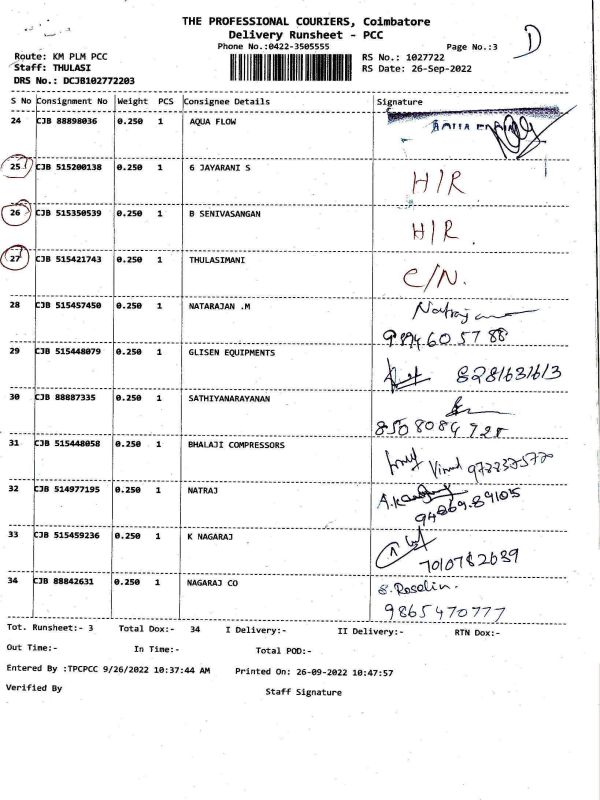 THE PROFESSIONAL COURIERS, Coimbatore
Delivery Runsheet - PCC
Phone No.:0422-3505555
Page No.:3
D
Route: KM PLM PCC
Staff: THULASI
DRS No.: DCJB102772203
RS No.: 1027722
RS Date: 26-Sep-2022
S No Consignment No Weight PCS Consignee Details Signature
24 CJB 88898036 0.250 1 AQUA FLOW
25 CJB 515200138 0.250 1 6 JAYARANI S H/R
26 CJB 515350539 0.250 1 B SENIVASANGAN H/R.
27 CJB 515421743 0.250 1 THULASIMANI C/N.
28 CJB 515457450 0.250 1 NATARAJAN .M
9894605788
29 CJB 515448079 0.250 1 GLISEN EQUIPMENTS 8281631613
30 CJB 88887335 0.250 1 SATHIYANARAYANAN
8508084728
31 CJB 515448058 0.250 1 BHALAJI COMPRESSORS
32 CJB 514977195 0.250 1 NATRAJ
94869.89105
33 CJB 515459236 0.250 1 K NAGARAJ
7010782639
34 CJB 88842631 0.250 1 NAGARAJ CO S. Roselin.
9865470777
Tot. Runsheet:- 3 Total Dox:- 34 I Delivery:- II Delivery:- RTN Dox:-
Out Time:- In Time:- Total POD:-
Entered By :TPCPCC 9/26/2022 10:37:44 AM Printed On: 26-09-2022 10:47:57
Verified By Staff Signature